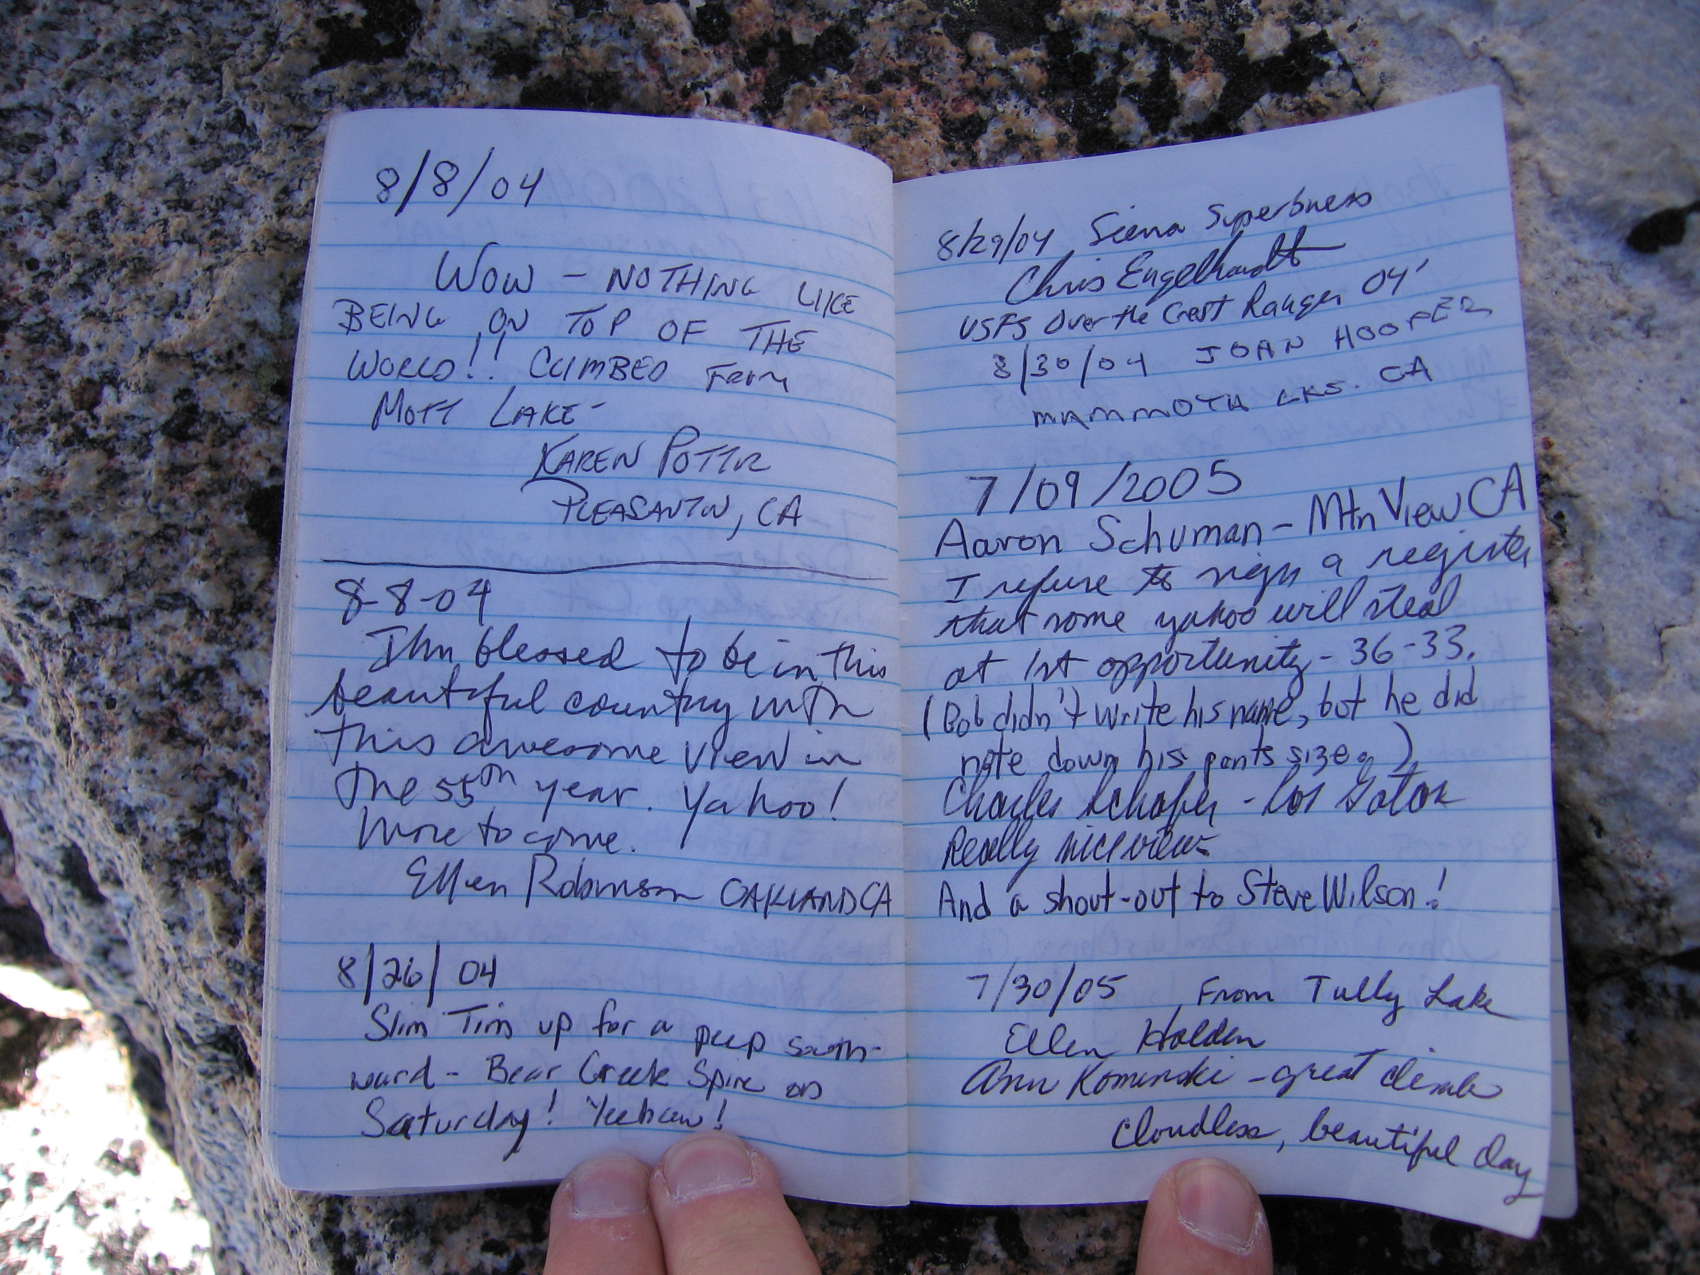 8/8/04
WOW – NOTHING LIKE
BEING ON TOP OF THE
WORLD!! CLIMBED FROM
MOTT LAKE –
KAREN POTTER
PLEASANTON, CA
8-8-04
I Am blessed to be in this
beautiful country with
this awesome view in
the 55th year. Yahoo!
More to come.
Ellen Robinson OAKLAND CA
8/26/04
Slim Tim up for a peep south-
ward – Bear Creek Spire on
Saturday! Yeehaw!
8/29/04 Sierra Superbness
Chris Engelhardt
USFS Over the Crest Ranger 04'
8/30/04 JOAN HOOPER
MAMMOTH LKS. CA
7/09/2005
Aaron Schuman – Mtn View CA
I refuse to sign a register
that some yahoo will steal
at 1st opportunity – 36-33.
(Bob didn't write his name, but he did
note down his pants size.)
Charles Schafer – Los Gatos
Really nice view
And a shout-out to Steve Wilson!
7/30/05 From Tully Lake
Ellen Holden
Ann Kominski – great climb
Cloudless, beautiful day